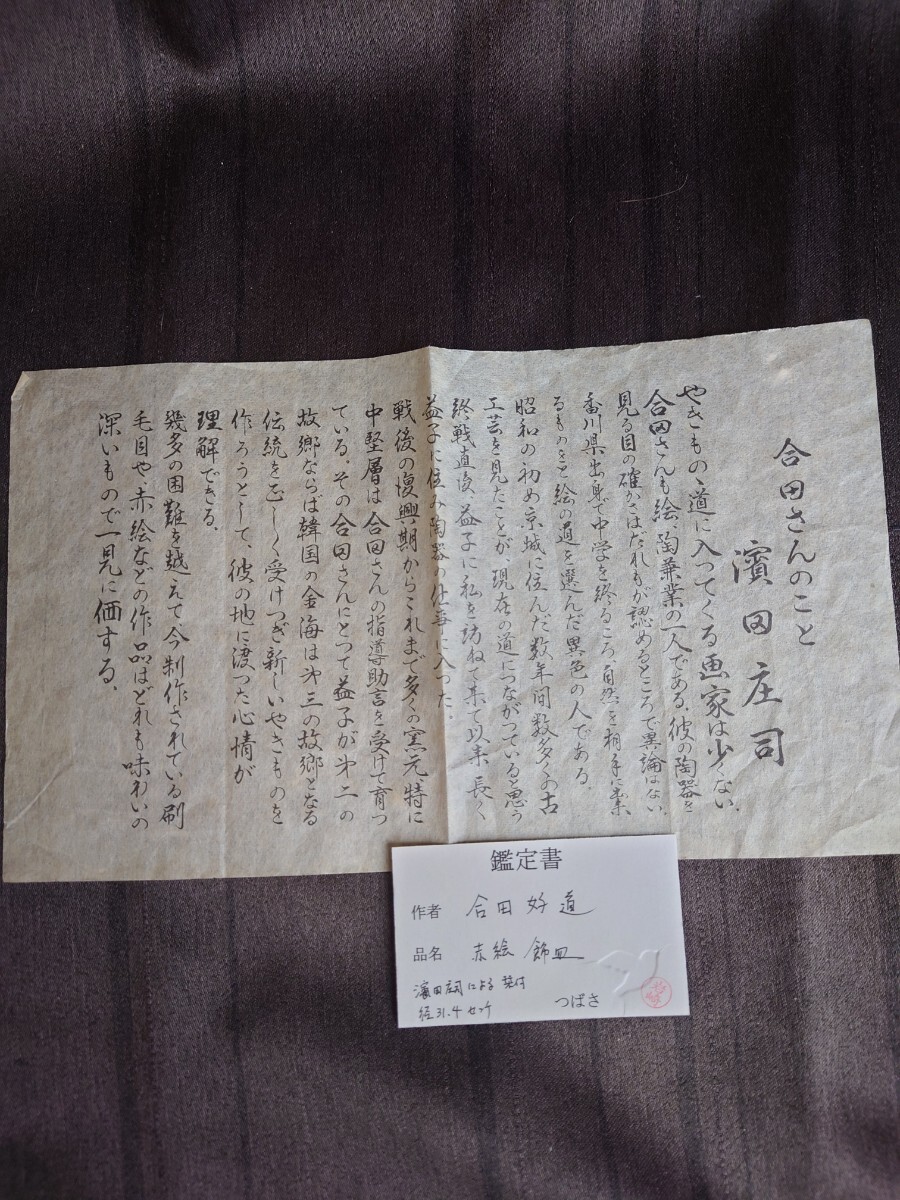 合田さんのこと
濱田庄司
やきものゝ道に入つてくる画家は少くない、
合田さんも絵、陶兼業の一人である。彼の陶器を
見る目の確かさはだれもが認めるところで異論はない、
香川県出身で中学を終るころ、自然を相手に出来
るものをと絵の道を選んだ異色の人である。
昭和の初め京城に住んだ数年間数多くの古
工芸を見たことが、現在の道につながつていると思う
終戦直後、益子に私を訪ねて来て以来、長く
益子に住み陶器の仕事に入つた。
戦後の復興期からこれまで多くの窯元、特に
中堅層は合田さんの指導助言を受けて育つ
ている。その合田さんにとつて益子が才二の
故郷ならば韓国の金海は才三の故郷となる
伝統を正しく受けつぎ新しいやきものを
作ろうとして、彼の地に渡つた心情が
理解できる。
幾多の困難を越えて、今制作されている刷
毛目や、赤絵などの作品はどれも味わいの
深いもので一見に価する、
鑑定書
作者 合田好道
品名 赤絵 飾皿
濱田庄司による 箱付
径31.4センチ
つばさ